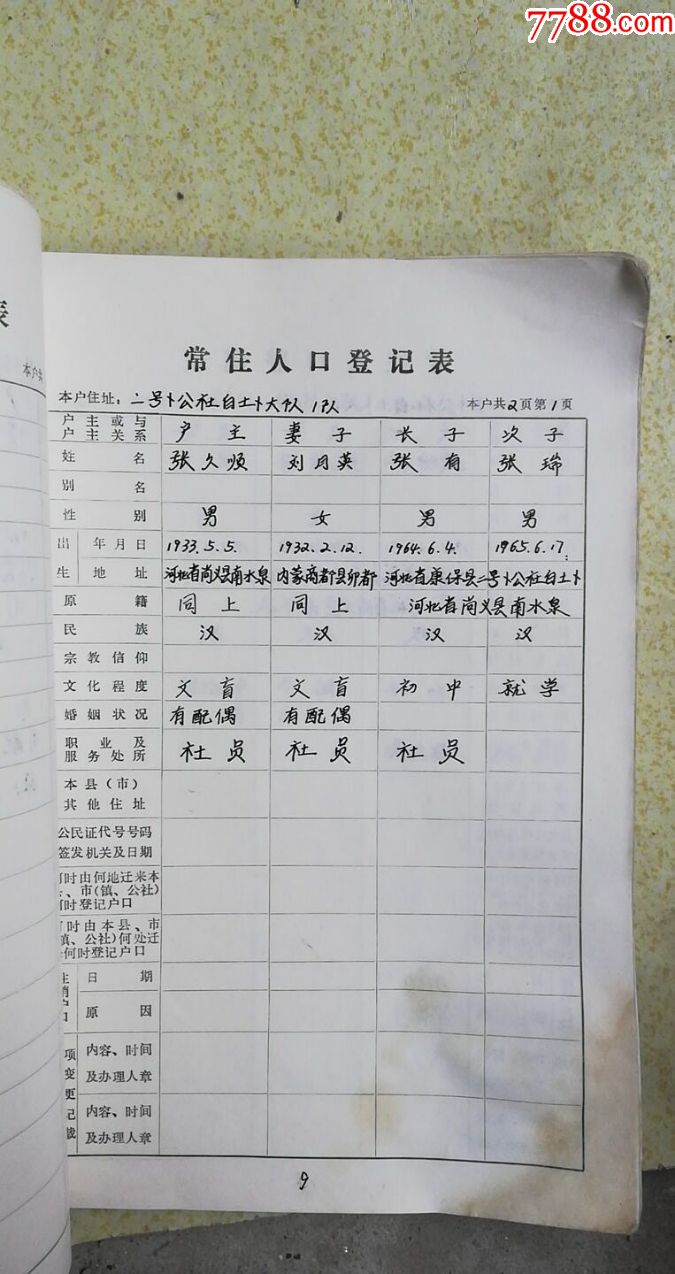 7788.com
表
本户共
常住人口登记表
本户住址：二号卜公社白土卜大队1队 本户共2页第1页
户主或与户主关系 户主 妻子 长子 次子
姓名 张久顺 刘月英 张有 张瑞
别名
性别 男 女 男 男
出生 年月日 1933.5.5. 1932.2.12. 1964.6.4. 1965.6.17.
地址 河北省尚义县南水泉 内蒙商都县卯都 河北省康保县二号卜公社白土卜
原籍 同上 同上 河北省尚义县南水泉
民族 汉 汉 汉 汉
宗教信仰
文化程度 文盲 文盲 初中 就学
婚姻状况 有配偶 有配偶
职业及服务处所 社员 社员 社员
本县（市）
其他住址
公民证代号号码
签发机关及日期
何时由何地迁来本
县、市（镇、公社）
何时登记户口
何时由本县、市
（镇、公社）何处迁
何时登记户口
注销户口 日期
原因
项变更记载 内容、时间
及办理人章
内容、时间
及办理人章
9